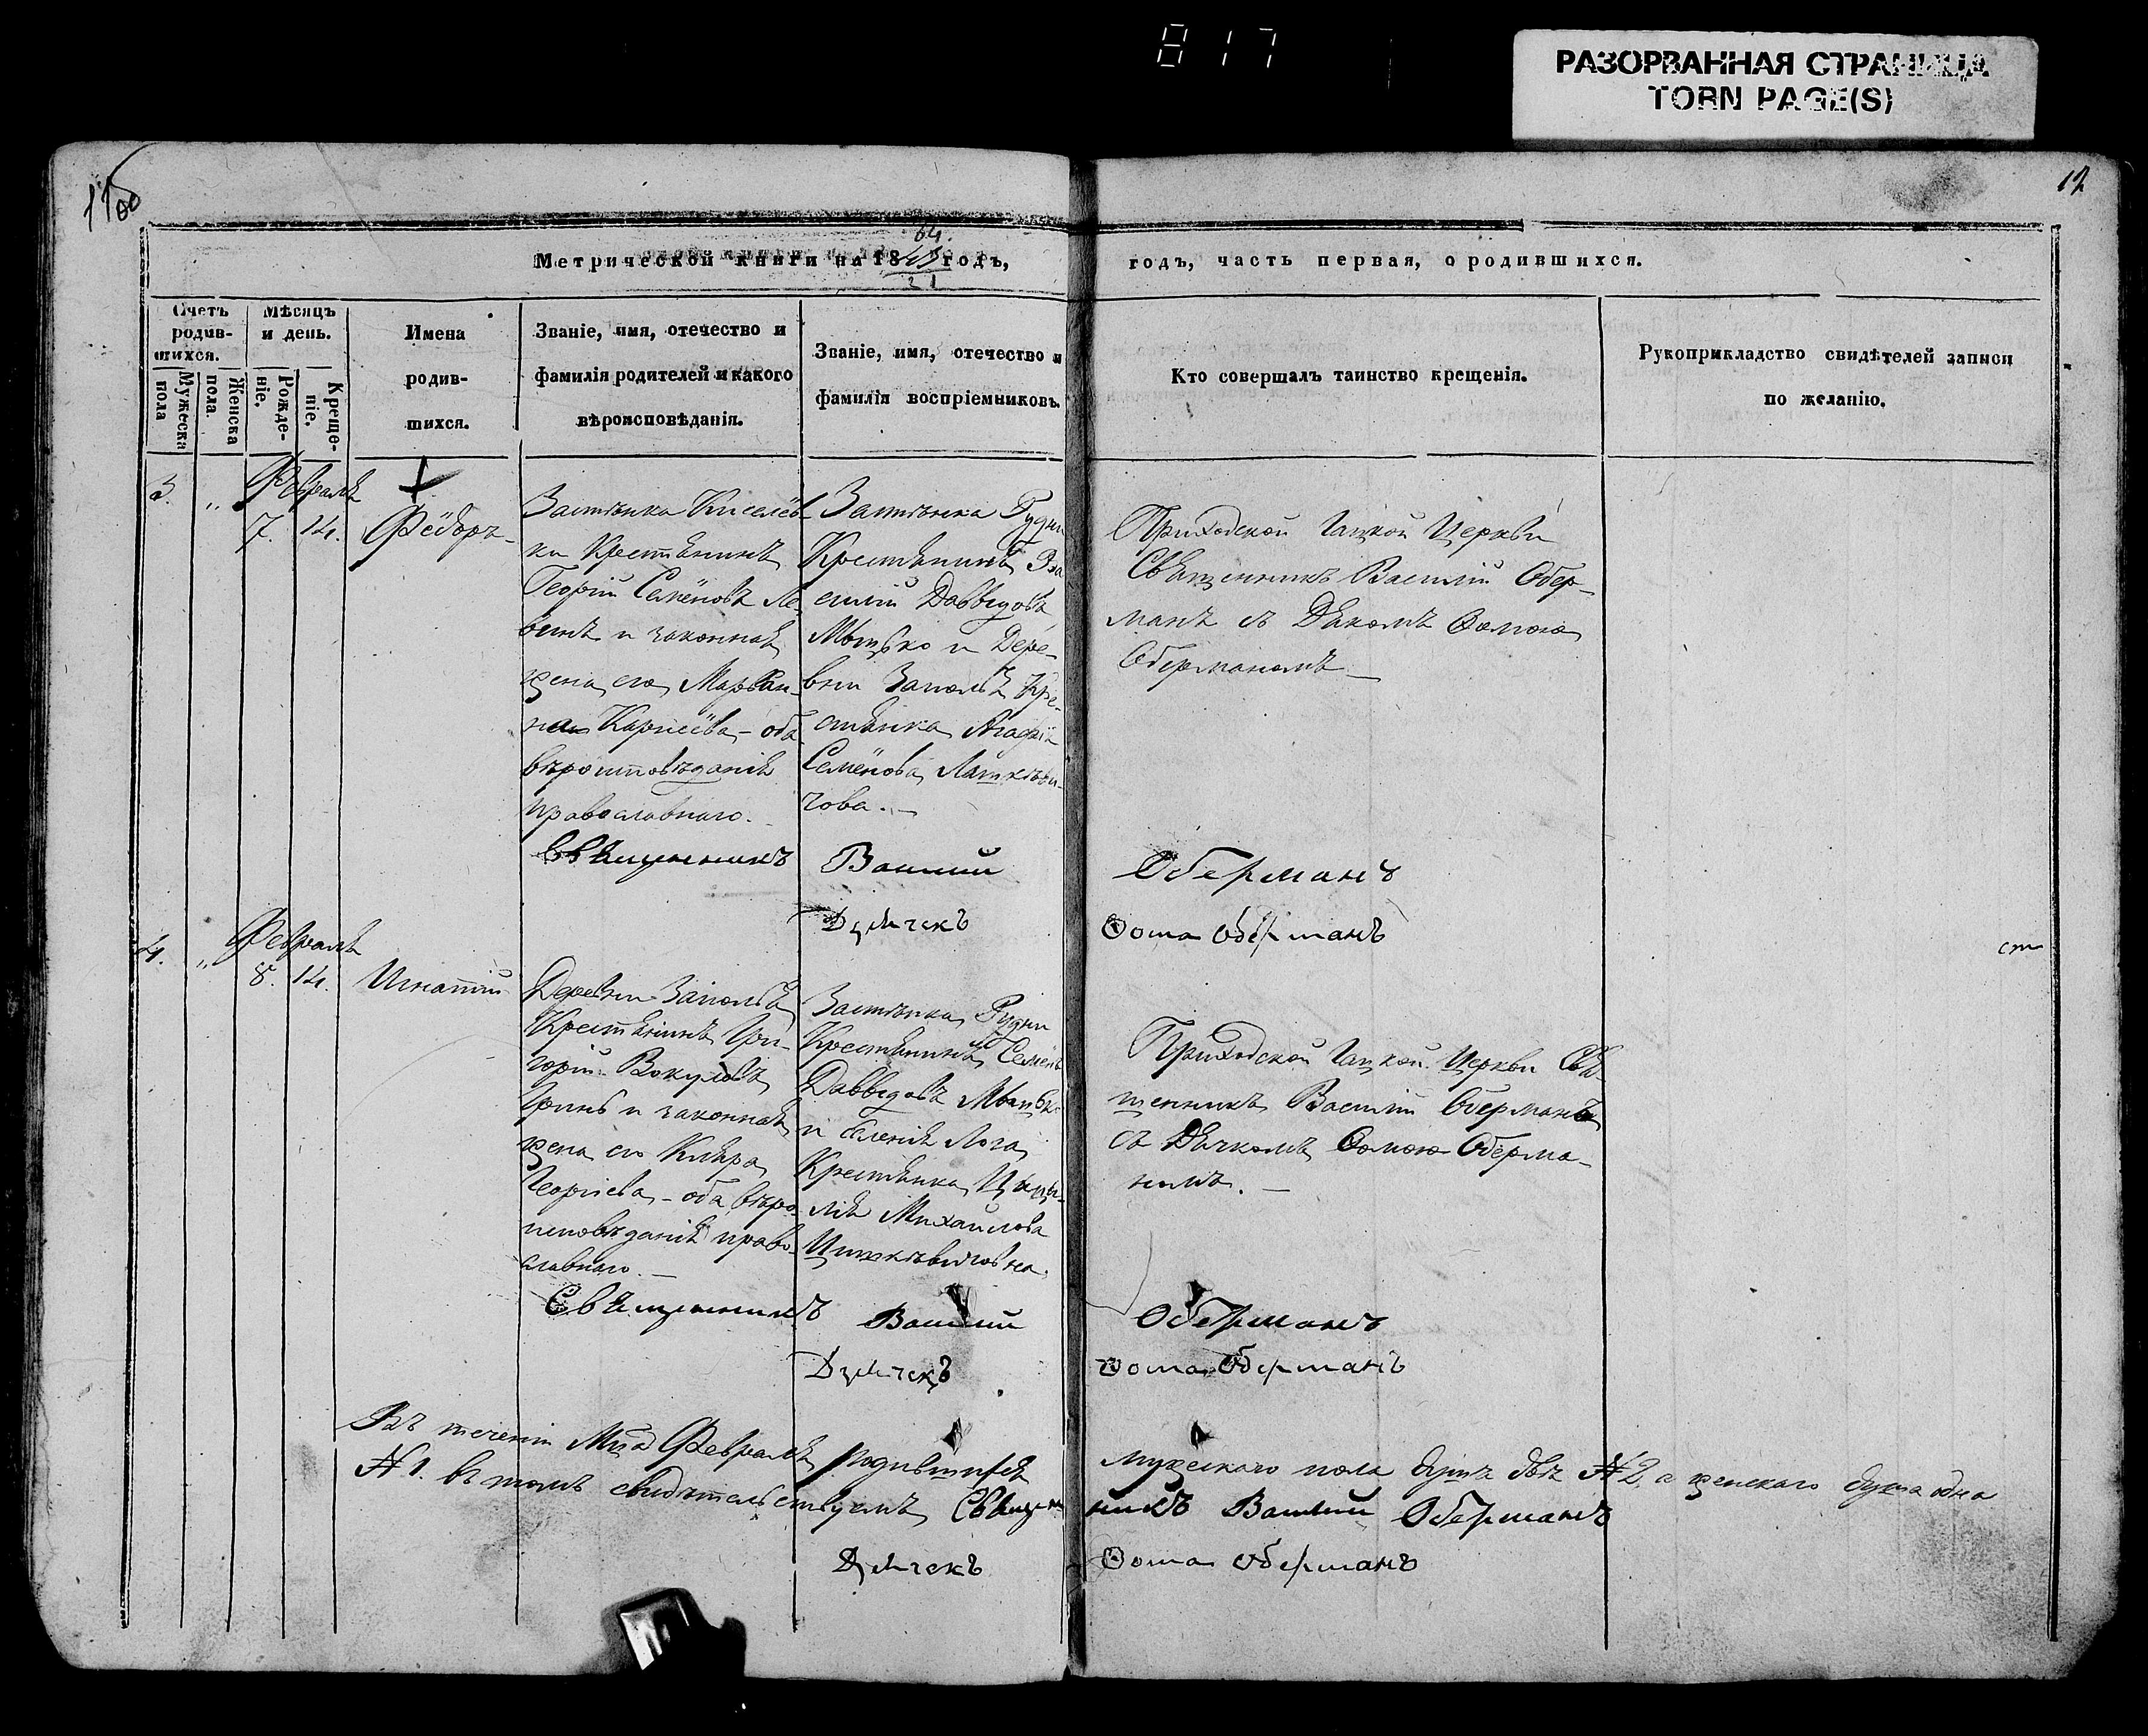 817
РАЗОРВАННАЯ СТРАНИЦА
TORN PAGE(S)
11об
12
64.
Метрической книги на 18 годъ,
21
годъ, часть первая, о родившихся.
Счетъ родив-шихся.
Мужеска пола
Женска пола.
Мѣсяцъ и день.
Рожде-ніе.
Креще-ніе.
Имена
родив-
шихся.
Званіе, имя, отечество и
фамилія родителей и какого
вѣроисповѣданія.
Званіе, имя, отечество и
фамилія воспріемниковъ.
Кто совершалъ таинство крещенія.
Рукоприкладство свидѣтелей записи
по желанію.
3. „ Февраля
7. 14. Фёдоръ
Застѣнка Киселёв-
ки Крестьянинъ
Георгій Семёновъ Ле-
винъ и законная
жена его Марьян-
на Карпеева – оба
вѣроисповѣданія
православнаго.
Застѣнка Рудни
Крестьянинъ
Давыдовъ
и Дере-
вни Заполья Кре-
стьянка Агафія
Семёнова
чова. –
Приходской Гацкой Церкви
Священникъ Василій Обер-
манъ съ Дьякомъ Ѳомою
Оберманомъ –
Священникъ Василій Оберманъ
Дьячекъ Ѳома Оберманъ
4. „ Февраля
8. 14. Игнатій
Деревни Заполья
Крестьянинъ Гри-
горій Вакуловъ
Гринь и законная
жена его Кліра
Георгіева – оба вѣро-
исповѣданія право-
славнаго. –
Застѣнка Рудни
Крестьянинъ Семёнъ
Давыдовъ
и селенія Лога
Крестьянка Цыцы-
лія Михайлова
Приходской Гацкой Церкви Свя-
щенникъ Василій Оберманъ
съ Дьячкомъ Ѳомою Оберма-
номъ. –
ст
Священникъ Василій Оберманъ
Дьячекъ Ѳома Оберманъ
Въ теченіи Мца Февраля родившихся мужескаго пола душъ двѣ № 2. а женскаго душа одна
№ 1. въ томъ свидѣтельствуемъ Священникъ Василій Оберманъ
Дьячекъ Ѳома Оберманъ